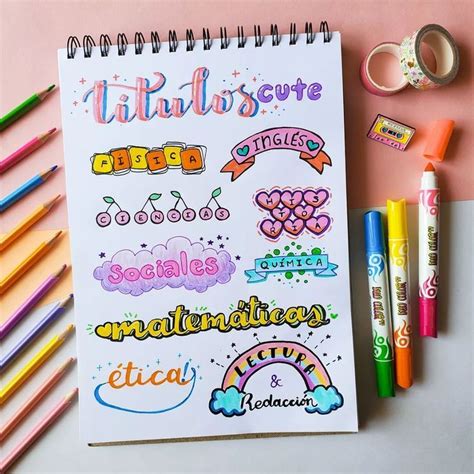 títulos cute
FÍSICA
INGLÉS
CIENCIAS
HISTORIA
Sociales
QUÍMICA
matemáticas
ética!
LECTURA
&
Redacción